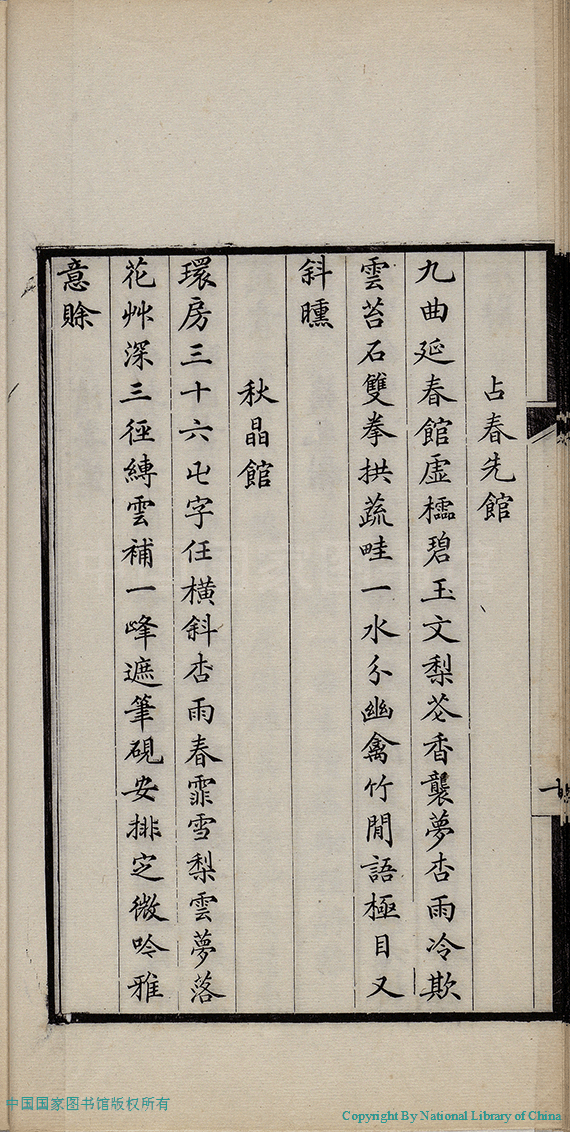 占春先館
九曲延春館虛櫺碧玉文梨苍香襲夢杏雨冷欺
雲苔石雙拳拱蔬畦一水分幽禽竹間語極目又
斜曛
秋晶館
環房三十六屯字任橫斜杏雨春霏雪梨雲夢落
花艸深三徑縛雲補一峰遮筆硯安排定微吟雅
意賒
中国国家图书馆版权所有
Copyright By National Library of China